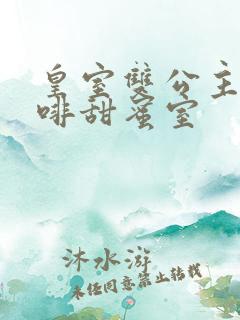 皇室雙公主
啡甜蜜室
沐水游
未经同意禁止转载